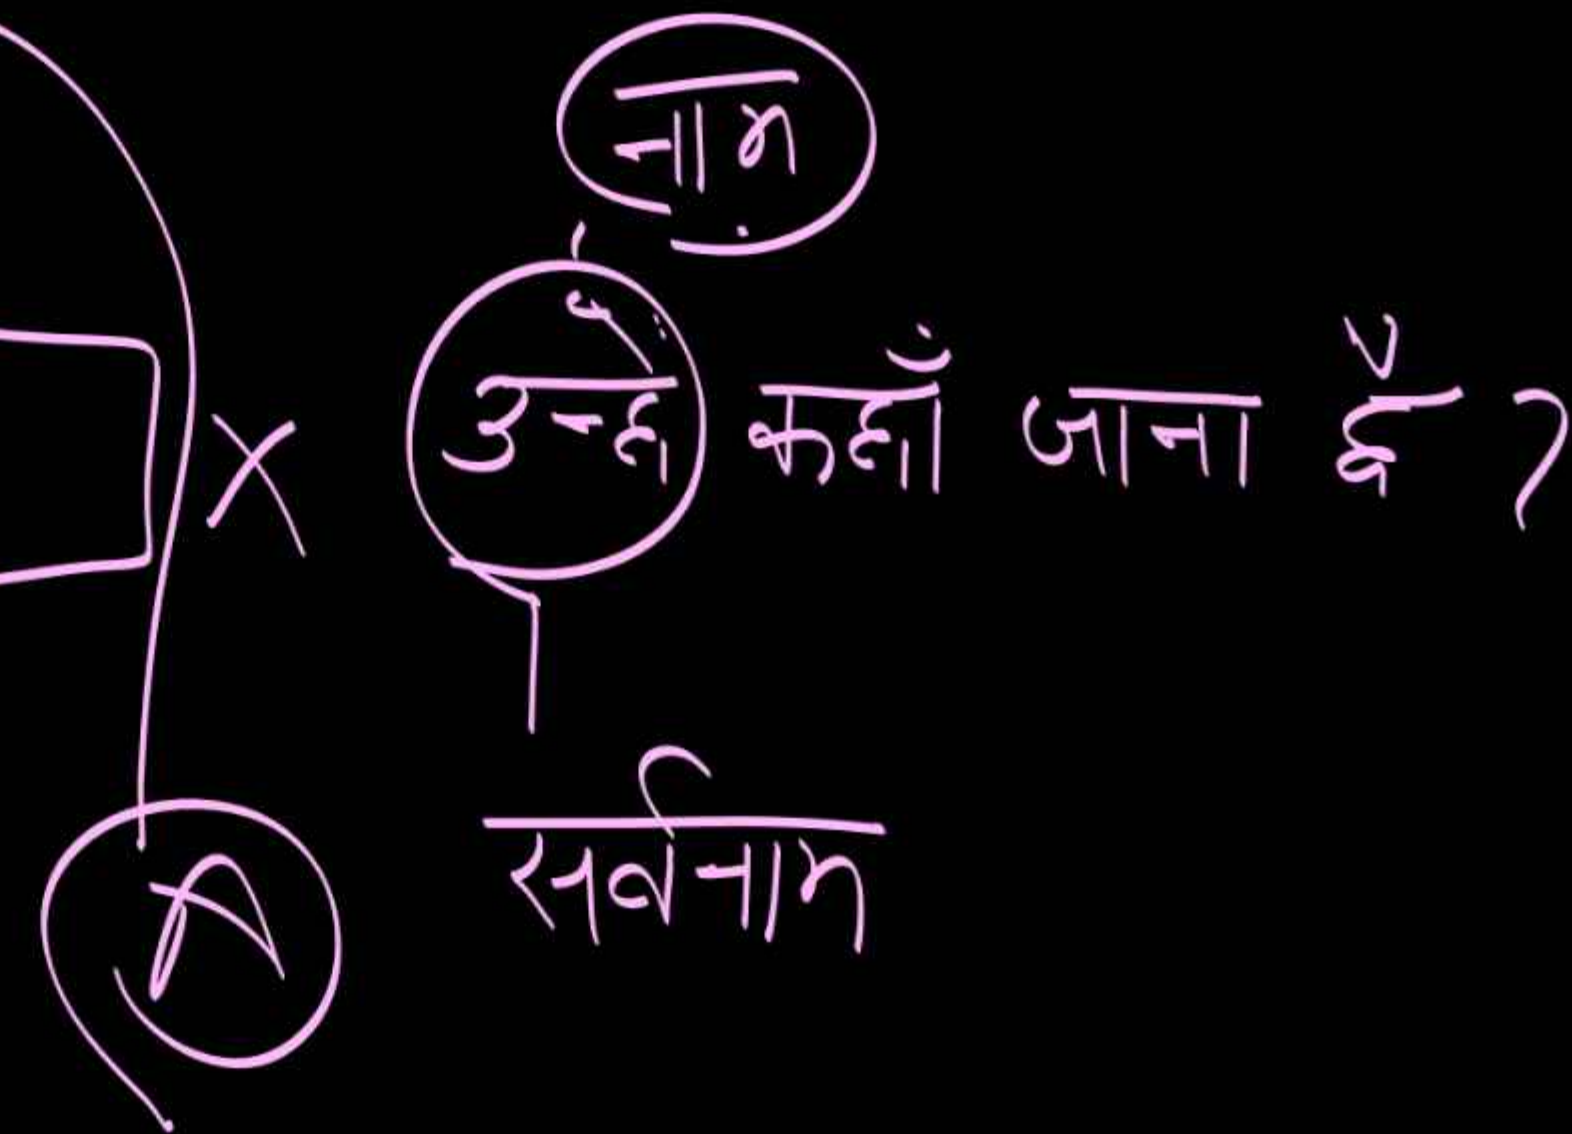 नाम
X उन्हें कहाँ जाना है ?
सर्वनाम